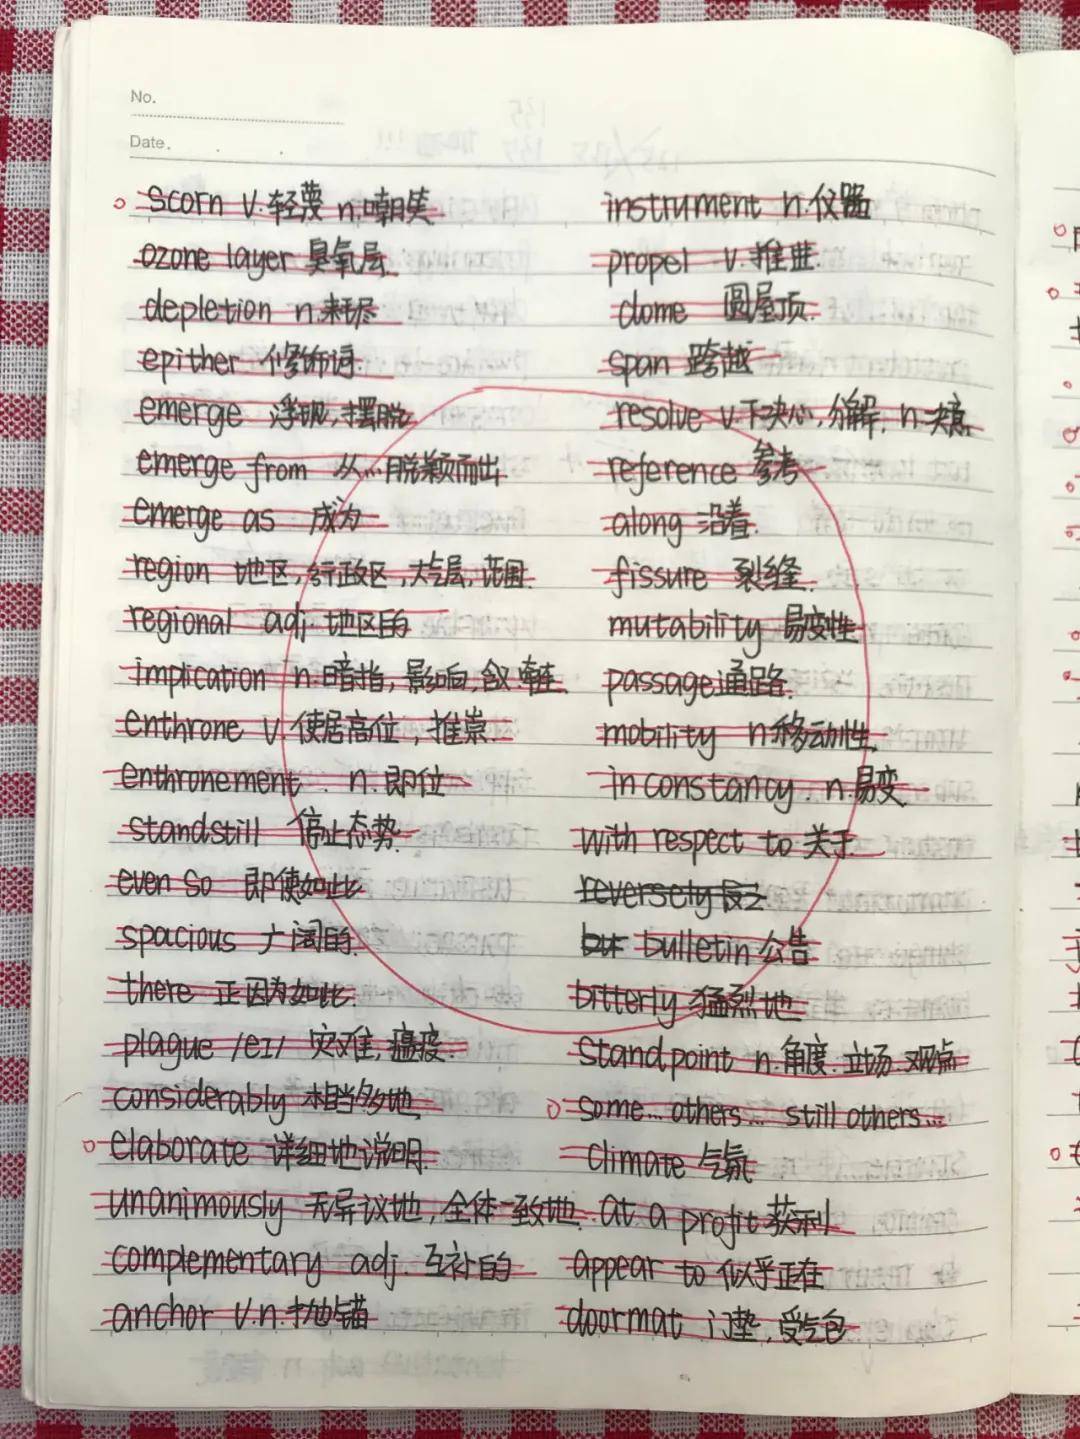 No.
Date.
scorn v.轻蔑 n.嘲笑
ozone layer 臭氧层
depletion n.耗尽
epither 修饰词
emerge 浮现,摆脱
emerge from 从...脱颖而出
emerge as 成为
region 地区,行政区,大气层,范围
regional adj 地区的
implication n.暗指,影响,含义,牵连
enthrone v.使居高位,推崇
enthronement n.即位
standstill 停止态势
even so 即使如此
spacious 广阔的
there 正因为如此
plague /eɪ/ 灾难,瘟疫.
considerably 相当多地
elaborate 详细地说明
unanimously 无异议地,全体一致地
complementary adj.互补的
anchor v.n.抛锚
instrument n.仪器
propel v.推进
dome 圆屋顶.
span 跨越
resolve v.下决心,分解, n.决意
reference 参考
along 沿着.
fissure 裂缝
mutability 易变性
passage 通路
mobility n.移动性.
inconstancy. n.易变
with respect to 关于
reversely 反之
bulletin 公告
bitterly 猛烈地
standpoint n.角度.立场.观点
some... others... still others...
climate 气氛
at a profit 获利
appear to 似乎正在
doormat 门垫,受气包